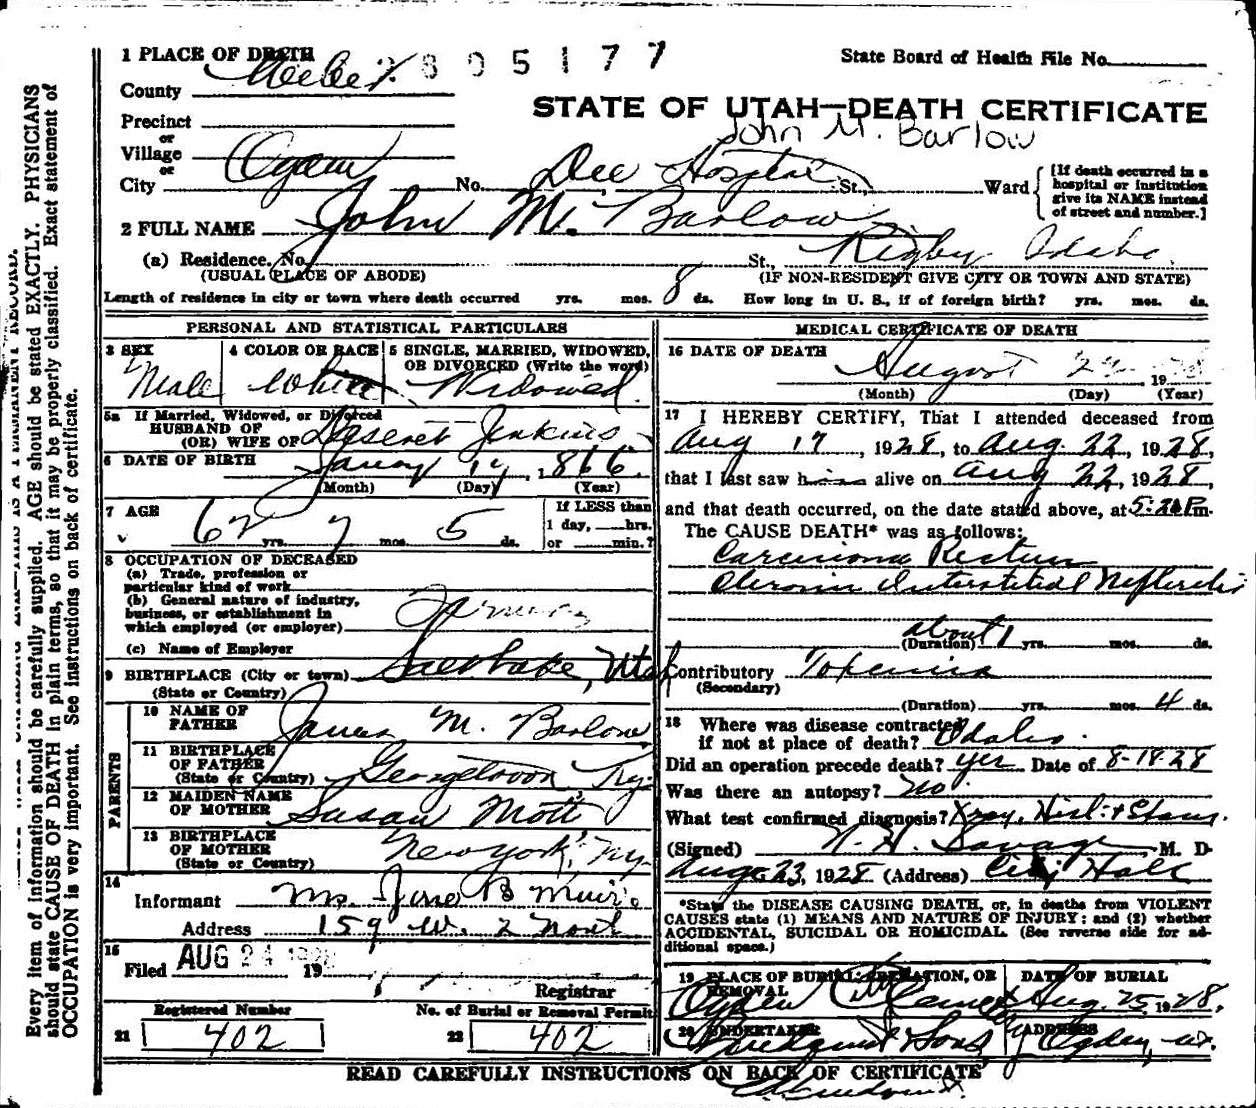 1 PLACE OF DEATH
2 8 0 5 1 7 7
State Board of Health File No.
County Weber
STATE OF UTAH—DEATH CERTIFICATE
Precinct
John M. Barlow
or
Village
or
City Ogden No. Dee Hospital St., Ward
[If death occurred in a
hospital or institution
give its NAME instead
of street and number.]
2 FULL NAME John M. Barlow
(a) Residence. No. St., Rigby Idaho.
(USUAL PLACE OF ABODE) (IF NON-RESIDENT GIVE CITY OR TOWN AND STATE)
Length of residence in city or town where death occurred yrs. mos. 8 ds. How long in U. S., if of foreign birth? yrs. mos. ds.
PERSONAL AND STATISTICAL PARTICULARS
3 SEX 4 COLOR OR RACE 5 SINGLE, MARRIED, WIDOWED,
OR DIVORCED (Write the word)
Male White Widowed.
5a If Married, Widowed, or Divorced
HUSBAND OF
(OR) WIFE OF Deseret Jenkins
6 DATE OF BIRTH 17, 1866.
(Month) (Day) (Year)
7 AGE 62 yrs. 7 mos. 5 ds.
If LESS than
1 day, hrs.
or min.?
8 OCCUPATION OF DECEASED
(a) Trade, profession or
particular kind of work
(b) General nature of industry,
business, or establishment in
which employed (or employer)
(c) Name of Employer
9 BIRTHPLACE (City or town) Salt Lake, Utah
(State or Country)
PARENTS
10 NAME OF
FATHER James M. Barlow
11 BIRTHPLACE
OF FATHER
(State or Country) Georgetown Ky.
12 MAIDEN NAME
OF MOTHER Susan Mott
13 BIRTHPLACE
OF MOTHER
(State or Country) New York, Ny.
14
Informant B Muir
Address 159 W. 2 North
15
Filed AUG 24 19
Registrar
Registered Number No. of Burial or Removal Permit
21 402 22 402
MEDICAL CERTIFICATE OF DEATH
16 DATE OF DEATH August 22, 1928
(Month) (Day) (Year)
17 I HEREBY CERTIFY, That I attended deceased from
Aug 17, 1928, to Aug. 22, 1928,
that I last saw him alive on Aug 22, 1928,
and that death occurred, on the date stated above, at 5: Pm.
The CAUSE DEATH* was as follows:
Carcinoma Rectum
Chronic Interstitial Nephritis
about 1
(Duration) yrs. mos. ds.
Contributory Toxemia
(Secondary)
(Duration) yrs. mos. 4 ds.
18 Where was disease contracted
if not at place of death? Idaho.
Did an operation precede death? yes Date of 8-18-28
Was there an autopsy? No.
What test confirmed diagnosis? Xray, Hist. +
(Signed) Savage M. D.
Aug. 23, 1928 (Address) City Hall
*State the DISEASE CAUSING DEATH, or, in deaths from VIOLENT
CAUSES state (1) MEANS AND NATURE OF INJURY; and (2) whether
ACCIDENTAL, SUICIDAL OR HOMICIDAL. (See reverse side for ad-
ditional space.)
19 PLACE OF BURIAL, CREMATION, OR
REMOVAL
DATE OF BURIAL
Ogden City Aug. 25, 1928.
20 UNDERTAKER ADDRESS
Lindquist & Sons Ogden, Ut.
READ CAREFULLY INSTRUCTIONS ON BACK OF CERTIFICATE
Every item of information should be carefully supplied. AGE should be stated EXACTLY. PHYSICIANS
should state CAUSE OF DEATH in plain terms, so that it may be properly classified. Exact statement of
OCCUPATION is very important. See instructions on back of certificate.